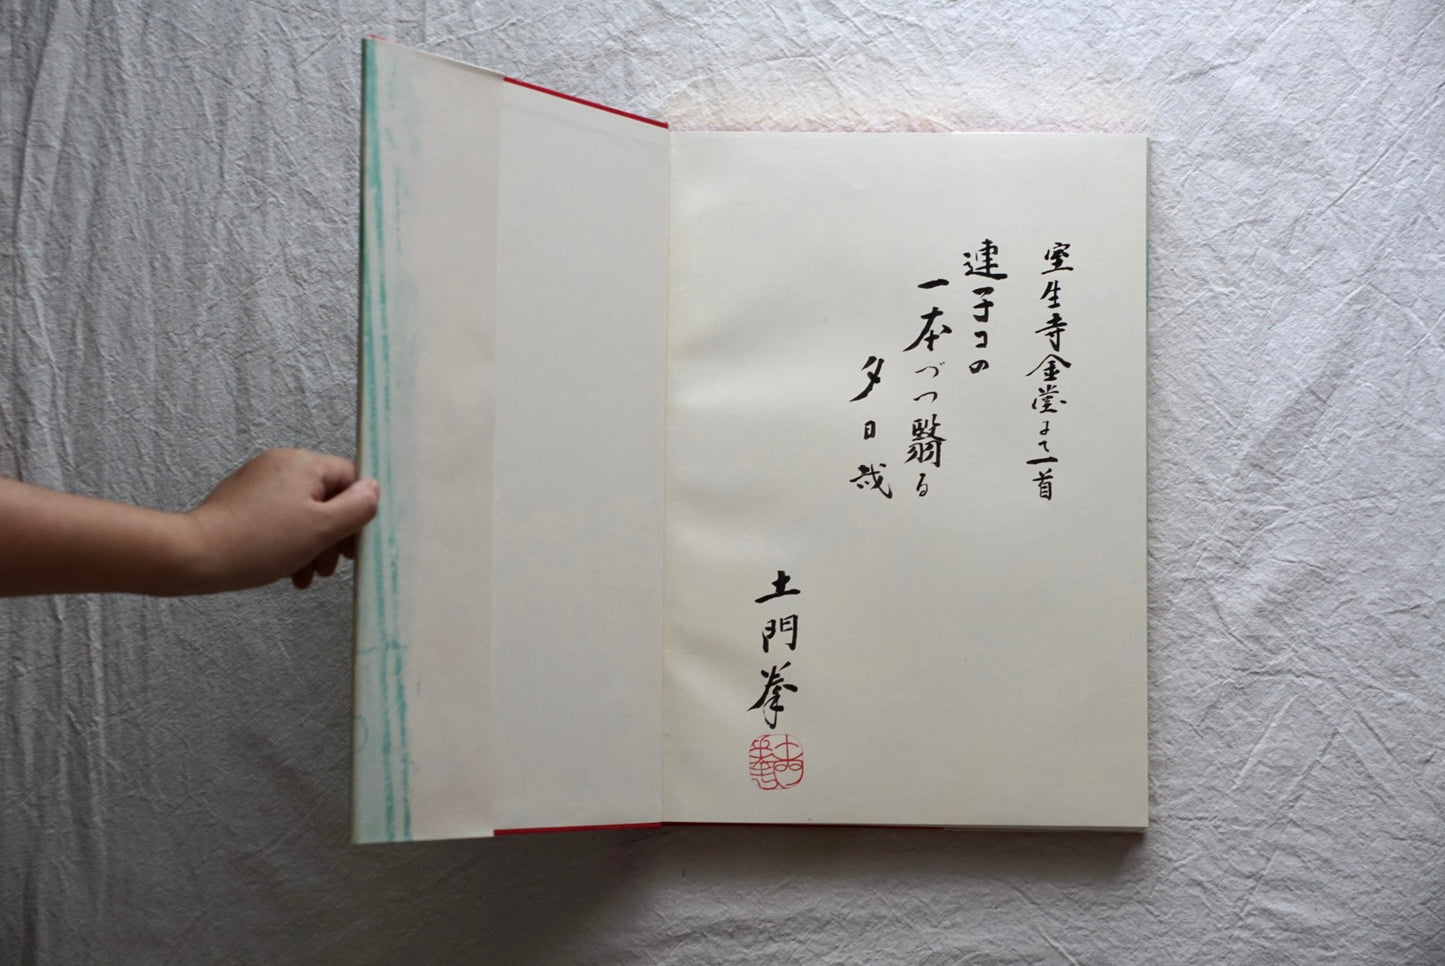 室生寺金堂にて一首
連子コの
一本づつ翳る
夕日哉
土門拳